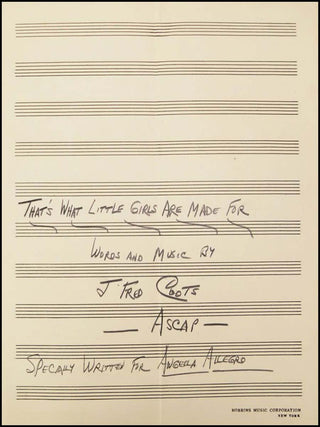 That's What Little Girls Are Made For
Words and Music By
J. Fred Coots
— Ascap —
Specially Written For Angela Allegro
ROBBINS MUSIC CORPORATION
NEW YORK